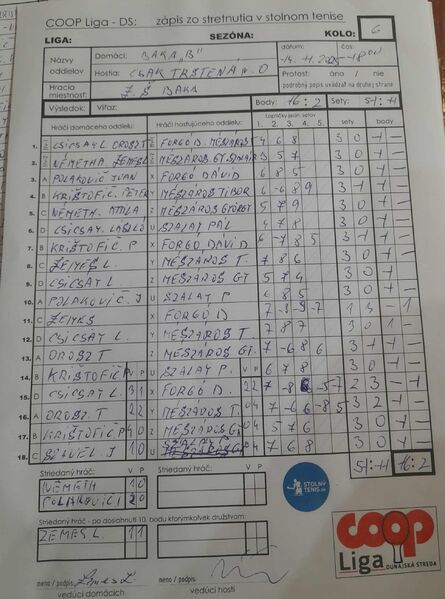 COOP Liga - DS: zápis zo stretnutia v stolnom tenise
LIGA: SEZÓNA: KOLO: 6
Názvy oddielov Domáci: BAKA „B"
Hostia: ČSAK TRSTENÁ n. O
dátum: čas:
Protest: áno / nie
podrobný popis uvádzať na druhej strane
Hracia miestnosť: Z.Š BAKA
Výsledok: Víťaz: Body: 16:2 Sety: 51:11
Hráči domáceho oddielu: Hráči hosťujúceho oddielu: Loptičky jedn. setov
1. 2. 3. 4. 5. sety body
1. CSICSAY L. OROSZ T FORGÓ D. MESZÁROS T 4 6 8 3 0 1 -
2. NÉMETH A ZEMES L. 3 5 7 3 0 1 -
3. A POLAKOVIČ JUAN X FORGÓ DÁVID 6 8 5 3 0 1 -
4. B KRIŠTOFIČ PÉTER Y MESZÁROS TIBOR 6 -6 8 9 3 1 1 -
5. C NÉMETH ATTILA Z MESZÁROS GYÖRGY 5 7 9 3 0 1 -
6. D CSICSAY LÁSZLÓ U SZALAY PÁL 4 7 8 3 0 1 -
7. B KRIŠTOFIČ P X FORGÓ DÁVID 6 -7 8 5 3 1 1 -
8. C ZEMES L. Y MESZÁROS T 7 8 6 3 0 1 -
9. D CSICSAY L Z MESZÁROS GY 5 7 4 3 0 1 -
10. A POLAKOVIČ J U SZALAY P. 6 8 5 3 0 1 -
11. C ZEMES X FORGÓ D 7 -8 -9 -7 1 3 - 1
12. D CSICSAY L. Y MESZÁROS T. 7 8 7 3 0 1 -
13. A OROSZ T Z MESZÁROS GY. 7 -6 8 6 3 1 1 -
14. B KRIŠTOFIČ P U SZALAY P. 6 7 8 3 0 1 -
V P V P
15. D CSICSAY L 3 1 X FORGÓ D. 2 2 7 -8 6 -5 -7 2 3 - 1
16. A OROSZ T. 2 2 Y MESZÁROS T. 0 4 7 -6 6 -8 5 3 2 1 -
17. B KRIŠTOFIČ P 4 0 Z MESZÁROS GY 0 4 5 7 6 3 0 1 -
18. C 1 0 U SZALAY P 7 6 8 3 0 1 -
51:11 16:2
Striedaný hráč: V P Striedaný hráč: V P
NÉMETH 1 0
POLAKOVIČ J 2 0
Striedaný hráč - po dosiahnutí 10. bodu ktorýmkoľvek družstvom:
ZEMES L. 1 1
STOLNÝ TENIS.SK
meno / podpis
vedúci domácich
meno / podpis
vedúci hostí
coop Liga
DUNAJSKÁ STREDA